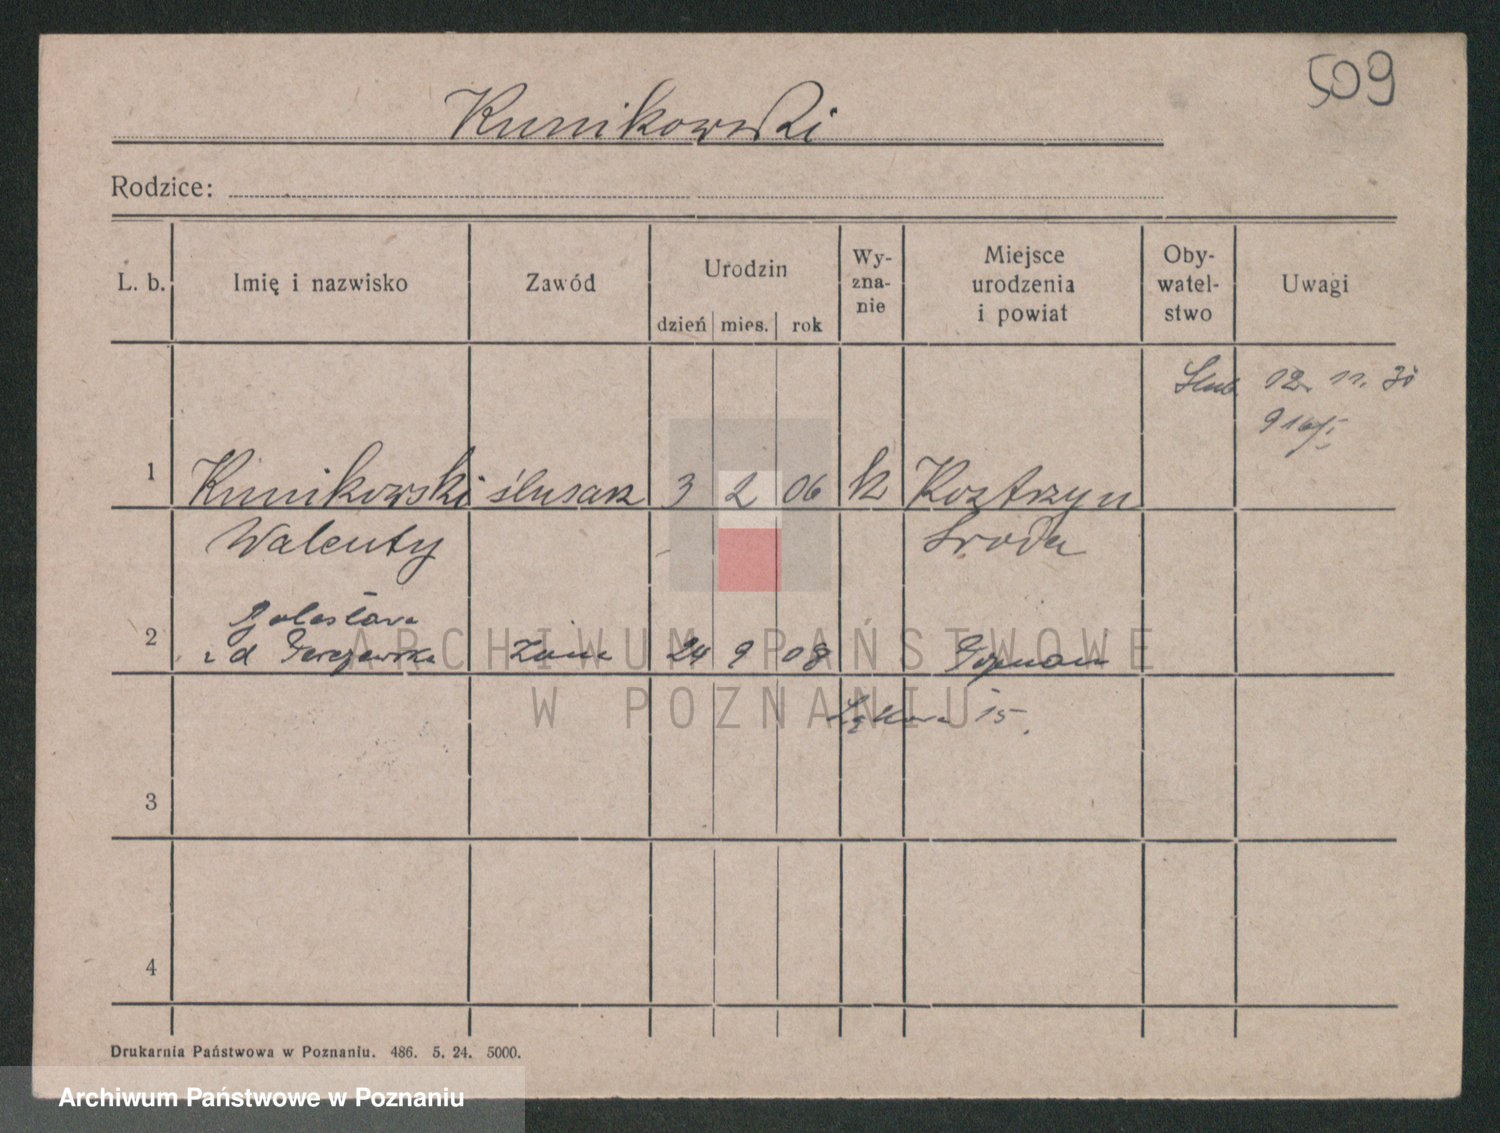 509
Kunikowski
Rodzice:
L. b. Imię i nazwisko Zawód Urodzin dzień mies. rok Wy-zna-nie Miejsce urodzenia i powiat Oby-watel-stwo Uwagi
Ślub 12. 11. 30
916/I
1 Kunikowski ślusarz 3 2 06 k Kostrzyn
Walenty Środa
Bolesława
2 z d. żona 24 9 08 Poznań
ARCHIWUM PAŃSTWOWE
W POZNANIU
Łąkowa 15.
3
4
Drukarnia Państwowa w Poznaniu. 486. 5. 24. 5000.
Archiwum Państwowe w Poznaniu